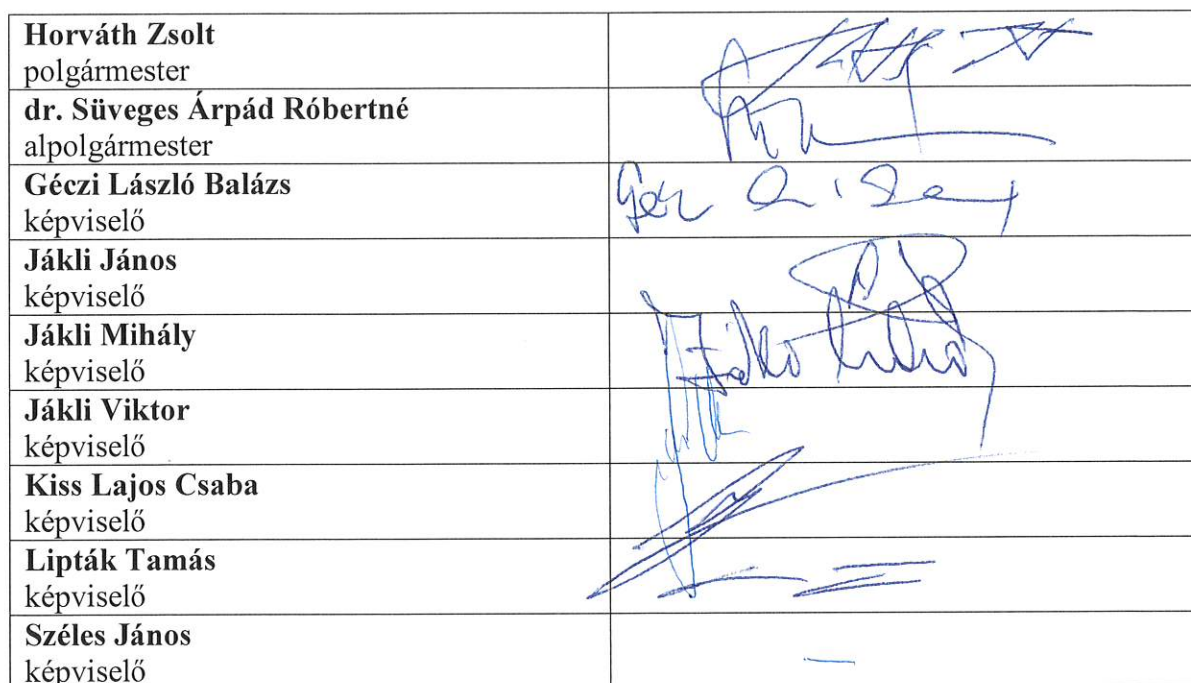 Horváth Zsolt
polgármester
dr. Süveges Árpád Róbertné
alpolgármester
Géczi László Balázs
képviselő
Jákli János
képviselő
Jákli Mihály
képviselő
Jákli Viktor
képviselő
Kiss Lajos Csaba
képviselő
Lipták Tamás
képviselő
Széles János
képviselő